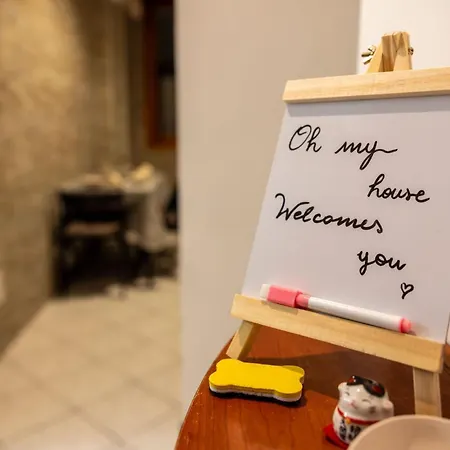 Oh my
house
Welcomes
you ♡